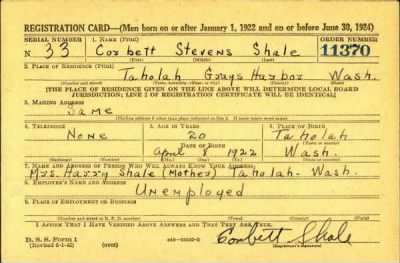 REGISTRATION CARD—(Men born on or after January 1, 1922 and on or before June 30, 1924)
SERIAL NUMBER 1. NAME (Print) ORDER NUMBER
N 33 Corbett Stevens Shale 11370
(First) (Middle) (Last)
2. PLACE OF RESIDENCE (Print)
Taholah Grays Harbor Wash.
(Number and street) (Town, township, village, or city) (County) (State)
[THE PLACE OF RESIDENCE GIVEN ON THE LINE ABOVE WILL DETERMINE LOCAL BOARD
JURISDICTION; LINE 2 OF REGISTRATION CERTIFICATE WILL BE IDENTICAL]
3. MAILING ADDRESS
Same
4. TELEPHONE 5. AGE IN YEARS 6. PLACE OF BIRTH
None 20 Taholah
DATE OF BIRTH
April 8 1922 Wash.
7. NAME AND ADDRESS OF PERSON WHO WILL ALWAYS KNOW YOUR ADDRESS
Mrs. Harry Shale (Mother) Taholah- Wash.
8. EMPLOYER'S NAME AND ADDRESS
Unemployed
9. PLACE OF EMPLOYMENT OR BUSINESS
(Number and street or R. F. D. number) (Town) (County) (State)
I AFFIRM THAT I HAVE VERIFIED ABOVE ANSWERS AND THAT THEY ARE TRUE.
D. S. S. Form 1
(Revised 6-1-42) (over) Corbett Shale
(Registrant's signature)